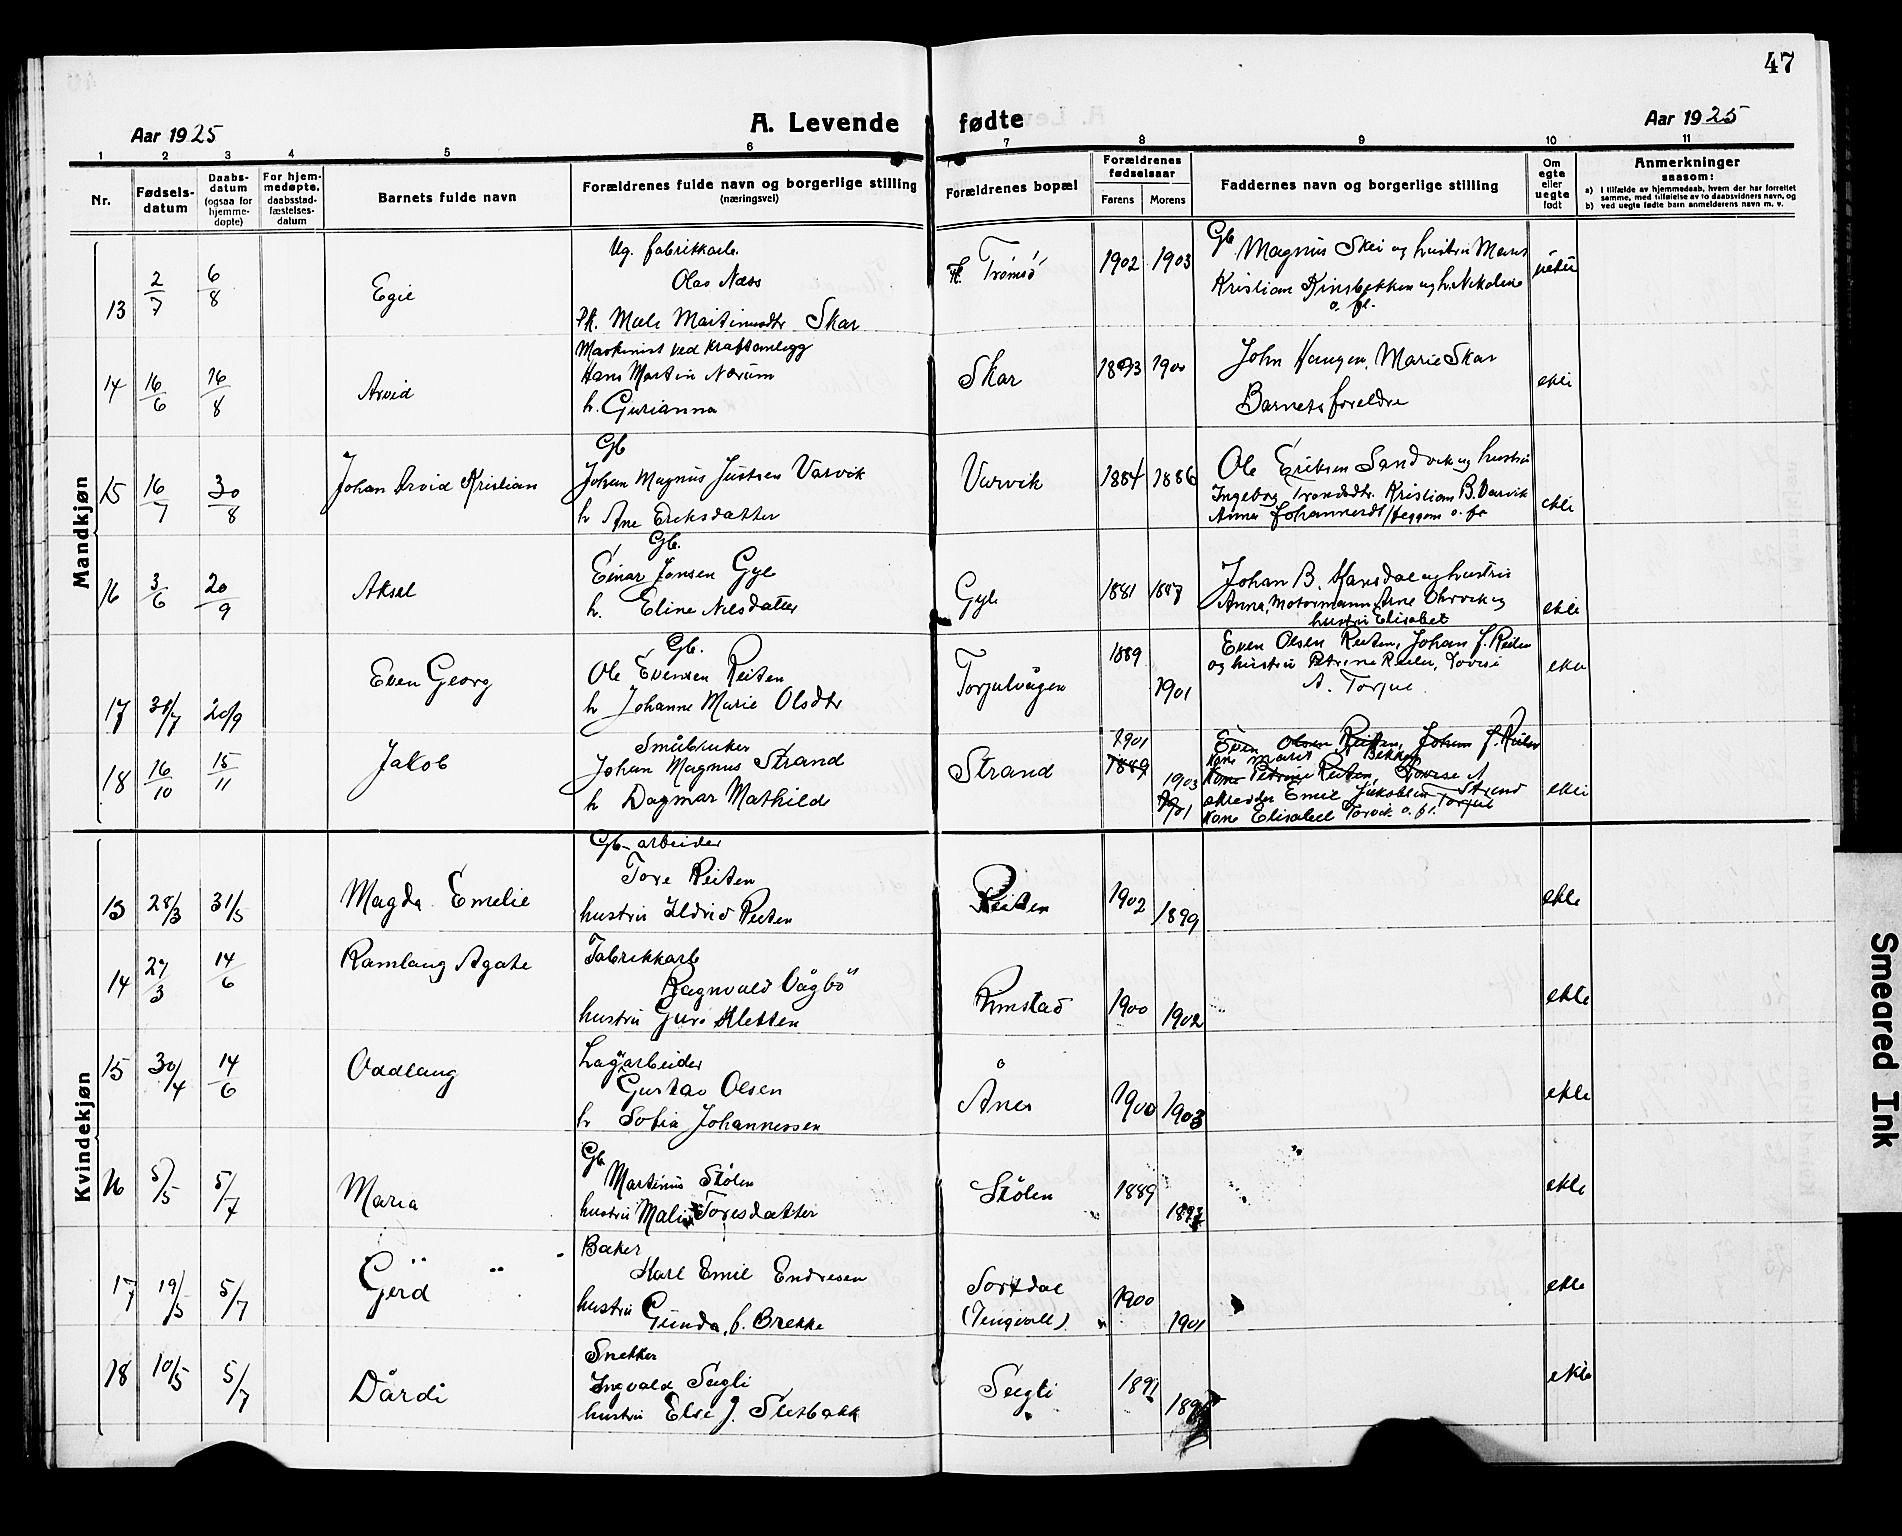 47
Aar 1925
A. Levende fødte
Aar 1925
1 2 3 4 5 6 7 8 9 10 11
Nr.
Fødsels-
datum
Daabs-
datum
(ogsaa for
hjemme-
døpte)
For hjem-
medøpte,
daabsstad-
fæstelses-
datum
Barnets fulde navn
Forældrenes fulde navn og borgerlige stilling
(næringsvei)
Forældrenes bopæl
Forældrenes
fødselsaar
Farens Morens
Faddernes navn og borgerlige stilling
Om
egte
eller
uegte
født
Anmerkninger
saasom:
a) I tilfælde av hjemmedaab, hvem der har forrettet
samme, med tilføielse av to daabsvidners navn, og
b) ved uegte fødte barn anmelderens navn m. v.
Mandkjøn
13 2/7 6/8 Egil
Ug. fabrikkarb.
Olav Næss
Pk. Mali Martinusdtr Skar
Tromsö 1902 1903
Gb. Magnus Skei og hustru
Kristian og h. Nikoline
o. fl.
14 16/6 16/8 Arvid
Maskinist ved kraftanlegg
Hans Martin Nærum
h. Gurianna
Skar 1893 1900
John Haugen, Marie Skar
Barnets foreldre
ekte
15 16/7 30/8 Johan Arvid Kristian
Gb
Johan Magnus Justsen Varvik
h Ane Eriksdatter
Varvik 1884 1886
Ole Eriksen Sandvik og hustru
Ingeborg Kristian B. Varvik
Anna Johannesdt Heggem o. fl
ekte
16 3/6 20/9 Aksel
Gb.
Einar Jonsen Gyl
h. Eline Nilsdatter
Gyl 1881 1887
Johan B. og hustru
Anna, Motormann Arne og
hustru Elisabet
ekte
17 31/7 20/9 Even Georg
Gb.
Ole Evensen Reiten
h Johanne Marie Olsdtr
Torjulvågen 1889 1901
Even Olsen Reiten, Johan J. Reiten
og hustru Petrine Reiten, Lovise
A. Torjul
ekte
18 16/10 15/11 Jakob
Småbruker
Johan Magnus Strand
h Dagmar Mathilde
Strand 1901 1889 1903 1901
Even Olsen Reiten, Johan J. Reiten
Kone Marit Bekken
Kone Petrine Reiten, Lovise A
Emil Jakobsen Strand Torjul
Kone Elisabet Torvik o. fl.
ekte
Kvindekjøn
13 28/3 31/5 Magda Emelie
Gb.-arbeider
Tore Reiten
hustru Ildrid Reiten
Reiten 1902 1899 ekte
14 27/3 14/6 Ramlaug Agate
Fabrikkarb
Ragnvald Vågbö
hustru Guro Kletten
Rimstad 1900 1902 ekte
15 30/4 14/6 Oddlaug
Lagarbeider
Gustav Olsen
h Sofia Johannessen
Ånes 1900 1903 ekte
16 5/5 5/7 Maria
Gb.
Martinus Stölen
hustru Mali Toresdatter
Stölen 1889 ekte
17 19/5 5/7 Gerd
Baker
Karl Emil Endresen
hustru Gunda, f. Brekke
Sortdal
(Tingvoll)
1900 1901 ekte
18 10/5 5/7 Dårdi
Snekker
Ingvald Sugli
hustru Else J. Sletbakk
Sugli 1891 ekte
Smeared Ink